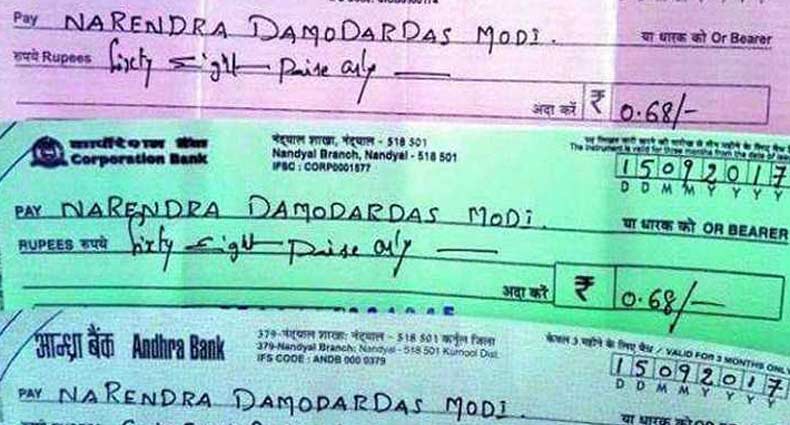 Pay NARENDRA DAMODARDAS MODI. या धारक को Or Bearer
रुपये Rupees Sixty eight paise only
अदा करें ₹ 0.68/-
कार्पोरेशन बैंक
Corporation Bank
नंद्याल शाखा, नंद्याल - 518 501
Nandyal Branch, Nandyal - 518 501
IFSC : CORP0001677
The instrument is valid for three months from the date of
15092017
D D M M Y Y Y Y
PAY NARENDRA DAMODARDAS MODI. या धारक को OR BEARER
RUPEES रुपये Sixty eight paise only
अदा करें ₹ 0.68/-
आन्ध्रा बैंक Andhra Bank
379-नंद्याल शाखा: नंद्याल - 518 501 कर्नूल जिला
379-Nandyal Branch: Nandyal - 518 501 Kurnool Dist.
IFS CODE : ANDB 000 0379
केवल 3 महीने के लिए वैध / VALID FOR 3 MONTHS ONLY
15092017
D D M M Y Y Y Y
PAY NARENDRA DAMODARDAS MODI. या धारक को OR